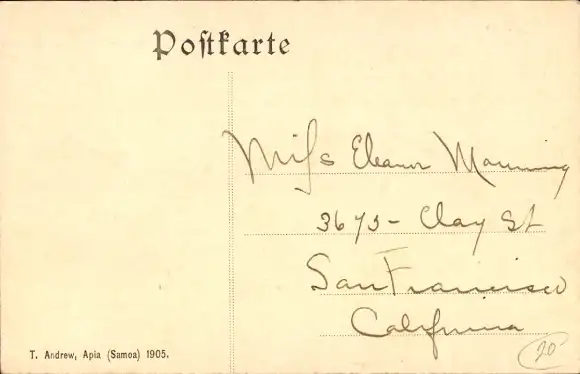 Postkarte
Miss Eleanor Manning
3675 - Clay St
San Francisco
California
T. Andrew, Apia (Samoa) 1905.
20